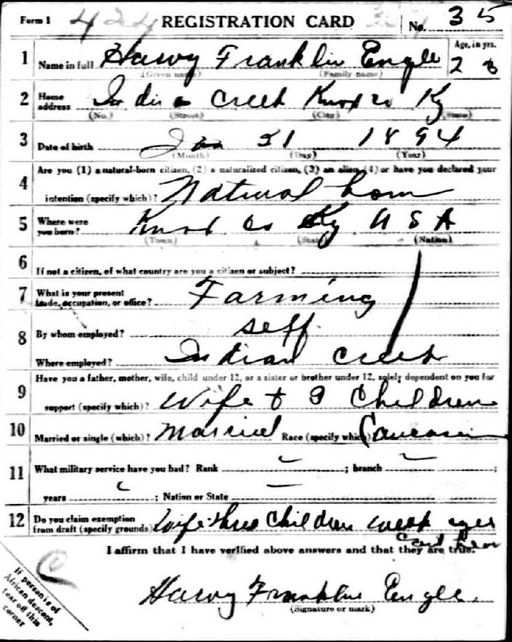 Form 1 424 REGISTRATION CARD No. 35
1 Name in full Harvy Franklin Engle Age, in yrs.
(Given name) (Family name)
2 Home address Indian Creek Knox co Ky
(No.) (Street) (City) (State)
3 Date of birth 31 1894
(Month) (Day) (Year)
4 Are you (1) a natural-born citizen, (2) a naturalized citizen, (3) an alien, (4) or have you declared your
intention (specify which)? Natural born
5 Where were you born? Knox co Ky U S A
(Town) (State) (Nation)
6 If not a citizen, of what country are you a citizen or subject?
7 What is your present trade, occupation, or office? Farming
8 By whom employed? self
Where employed? Indian Creek
9 Have you a father, mother, wife, child under 12, or a sister or brother under 12, solely dependent on you for
support (specify which)? Wife & 3 Children
10 Married or single (which)? Married Race (specify which)? Caucasian
11 What military service have you had? Rank ; branch
years ; Nation or State
12 Do you claim exemption from draft (specify grounds)? Wife three Children weak eyes
I affirm that I have verified above answers and that they are true.
Harvy Franklin Engle
(Signature or mark)
If person is of African descent, tear off this corner